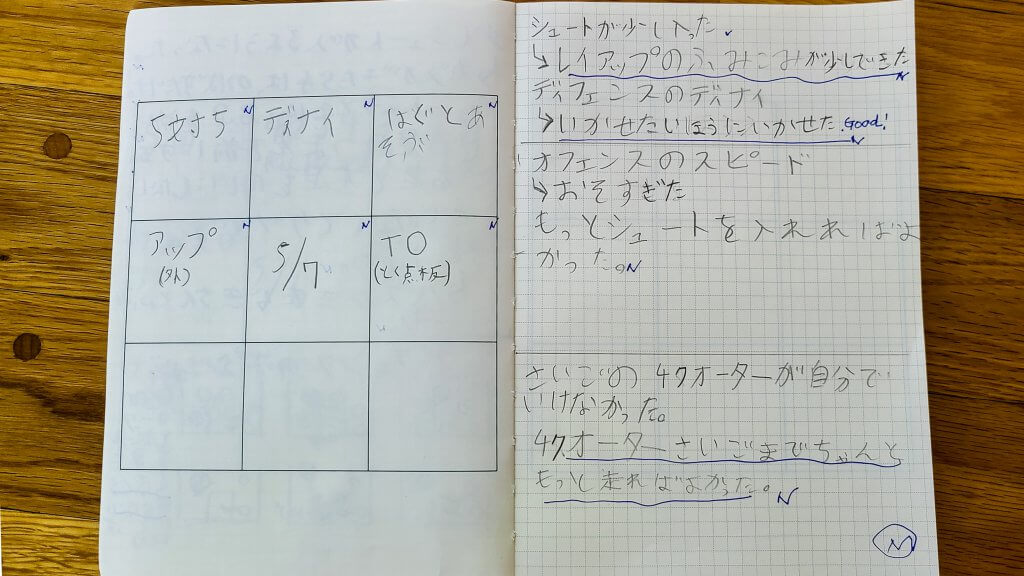 5対5
ディナイ
はぐとあ
そぶ
アップ
(外)
5/7
TO
(とく点板)
シュートが少し入った
↳レイアップのふみこみが少しできた
ディフェンスのディナイ
↳いかせたいほうにいかせた Good!
オフェンスのスピード
↳おそすぎた
もっとシュートを入れればよ
かった。
さいごの4クオーターが自分で
いけなかった。
4クオーターさいごまでちゃんと
もっと走ればよかった。